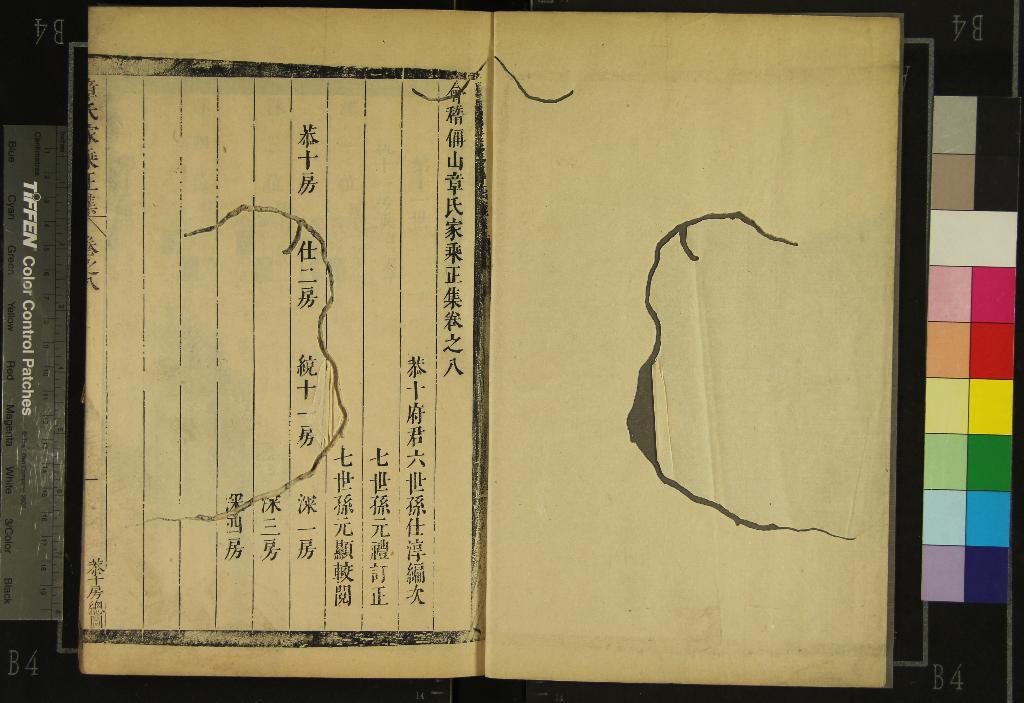 會稽偁山章氏家乘正集卷之八
恭十府君六世孫仕淳編次
七世孫元禮訂正
七世孫元顯較閱
恭十房 仕二房 統十一房 深一房
深三房
深四房
章氏家乘正集 卷之八
恭十房總圖
TIFFEN Color Control Patches
Blue Cyan Green Yellow Red Magenta White 3/Color Black
Centimetres
Inches
B4
B4
B4
B4